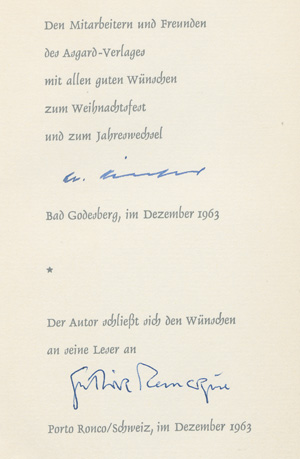 Den Mitarbeitern und Freunden
des Asgard-Verlages
mit allen guten Wünschen
zum Weihnachtsfest
und zum Jahreswechsel
Bad Godesberg, im Dezember 1963
*
Der Autor schließt sich den Wünschen
an seine Leser an
Remarque
Porto Ronco/Schweiz, im Dezember 1963